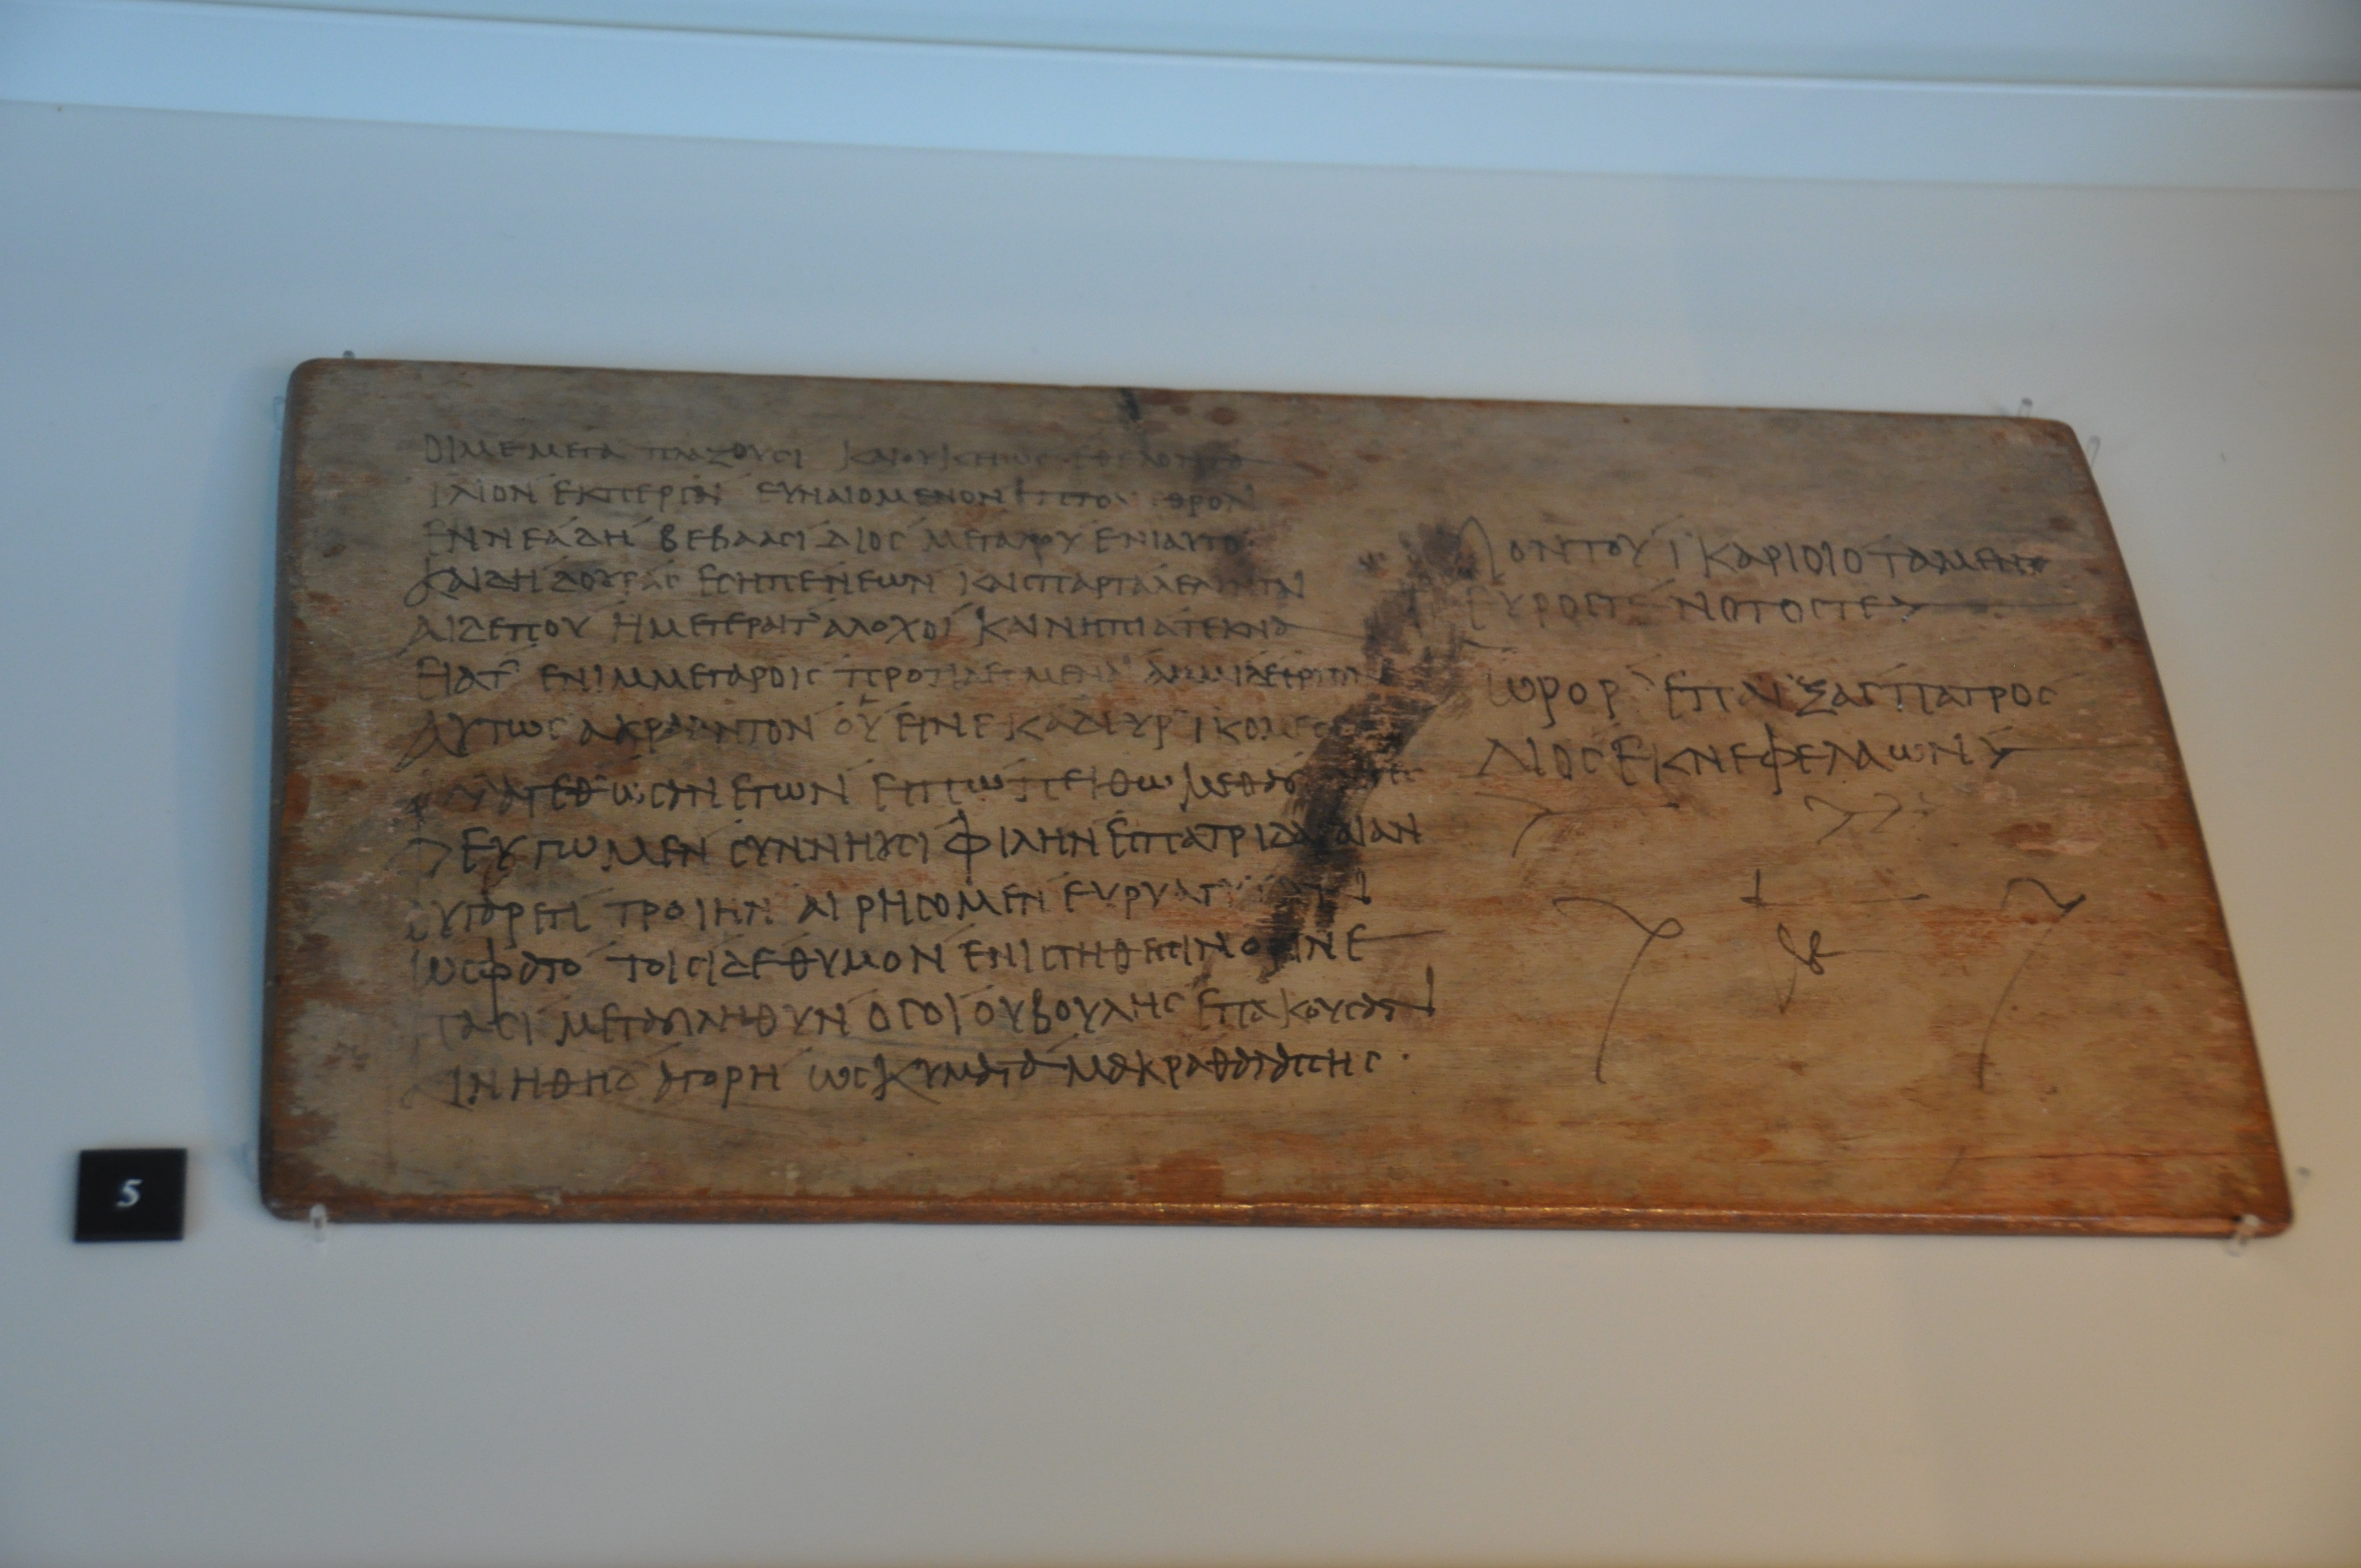 ΟΙΜΕΜΕΓΑ ΠΛΑΖΟΥCΙ ΚΑΙΟΥΚ
ΙΛΙΟΝ ΕΚΠΕΡCΑΙ ΕΥΝΑΙΟΜΕΝΟΝ
ΕΝΝΕΑΔΗ ΒΕΒΑΑCΙ ΔΙΟC ΜΕΓΑΛΟΥ ΕΝΙΑΥΤΟΙ
ΚΑΙΔΗ ΔΟΥΡΑC ΕCΗΠΕΝΕΩΝ ΚΑΙCΠΑΡΤΑΛΕΛΥΝΤΑΙ
ΑΙΔΕΠΟΥ ΗΜΕΤΕΡΑΙΤ ΑΛΟΧΟΙ ΚΑΙΝΗΠΙΑΤΕΚΝΑ
ΕΙΑΤ ΕΝΙΜΜΕΓΑΡΟΙC
ΑΥΤΩC ΑΚΡΑΑΝΤΟΝ ΟΥ ΕΙΝΕΚΑΔΕΥΡ ΙΚΟΜΕC
ΕΓΩΝ ΕΙΠΩ ΠΕΙΘΩΜΕΘΑ
ΦΕΥΓΩΜΕΝ CΥΝΝΗΥCΙ ΦΙΛΗΝ ΕCΠΑΤΡΙΔΑ ΓΑΙΑΝ
ΟΥΓΑΡΕΤΙ ΤΡΟΙΗΝ ΑΙΡΗCΟΜΕΝ ΕΥΡΥΑΓ
ΩCΦΑΤΟ ΤΟΙCΙΔΕ ΘΥΜΟΝ ΕΝΙCΤΗΘΕCCΙΝΟΡΙΝΕ
ΠΑCΙ ΜΕΤΑΠΛΗΘΥΝ ΟCΟΙ ΟΥΒΟΥΛΗC ΕΠΑΚΟΥCΑΝ
ΚΙΝΗΘΗΔ ΑΓΟΡΗ ΩCΚΥΜΑΤΑ ΜΑΚΡΑΘΑΛΑCCΗC
ΠΟΝΤΟΥ ΙΚΑΡΙΟΙΟ ΤΑΜΕΝΤ
ΕΥΡΟCΤΕ ΝΟΤΟCΤΕ
ΩΡΟΡ ΕΠΑΙΞΑC ΠΑΤΡΟC
ΔΙΟC ΕΚΝΕΦΕΛΑΩΝ
5